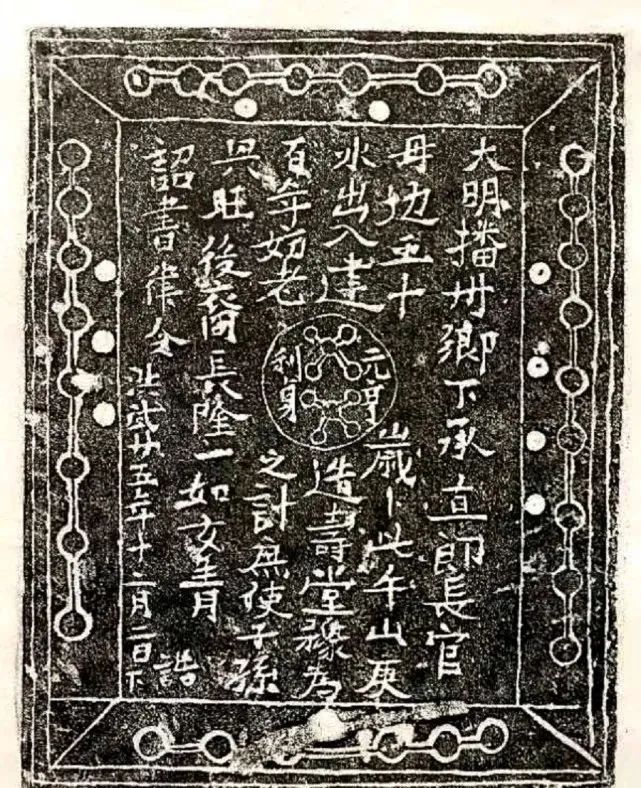 大明播州鄉下承直郎長官
母五十歲卜此午山庚
水出入建造壽堂豫為
百年妨老之計庶使子孫
興旺後裔長隆一如女青
詔書律令洪武廿五年十二月二日下誥
元亨
利貞